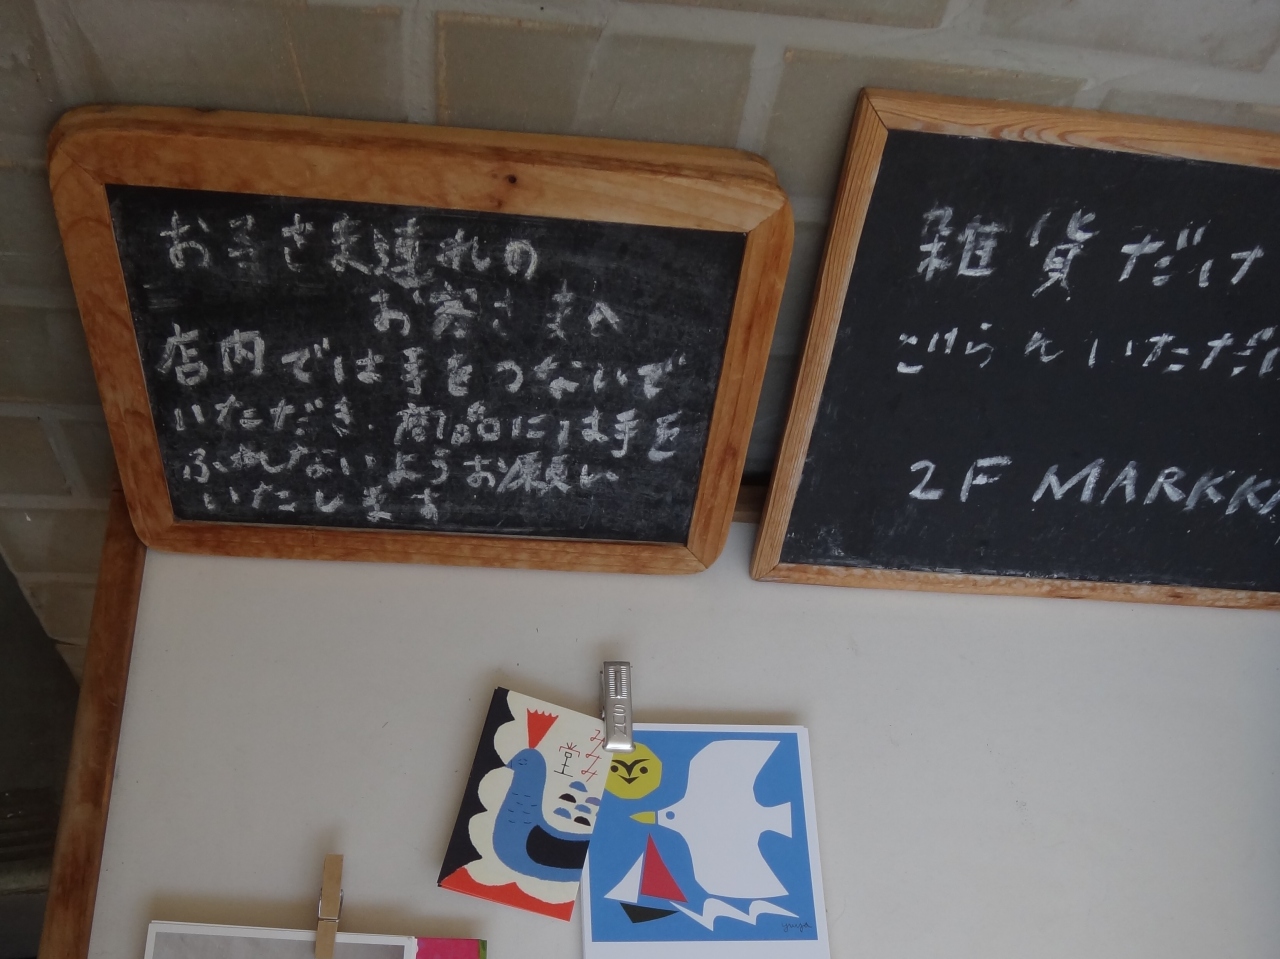 お子さま連れの
お客さまへ
店内では手をつないで
いただき、商品には手を
ふれないようお願い
いたします
雑貨だけ
ごらんいただ
2F MARKKA
みみみ堂